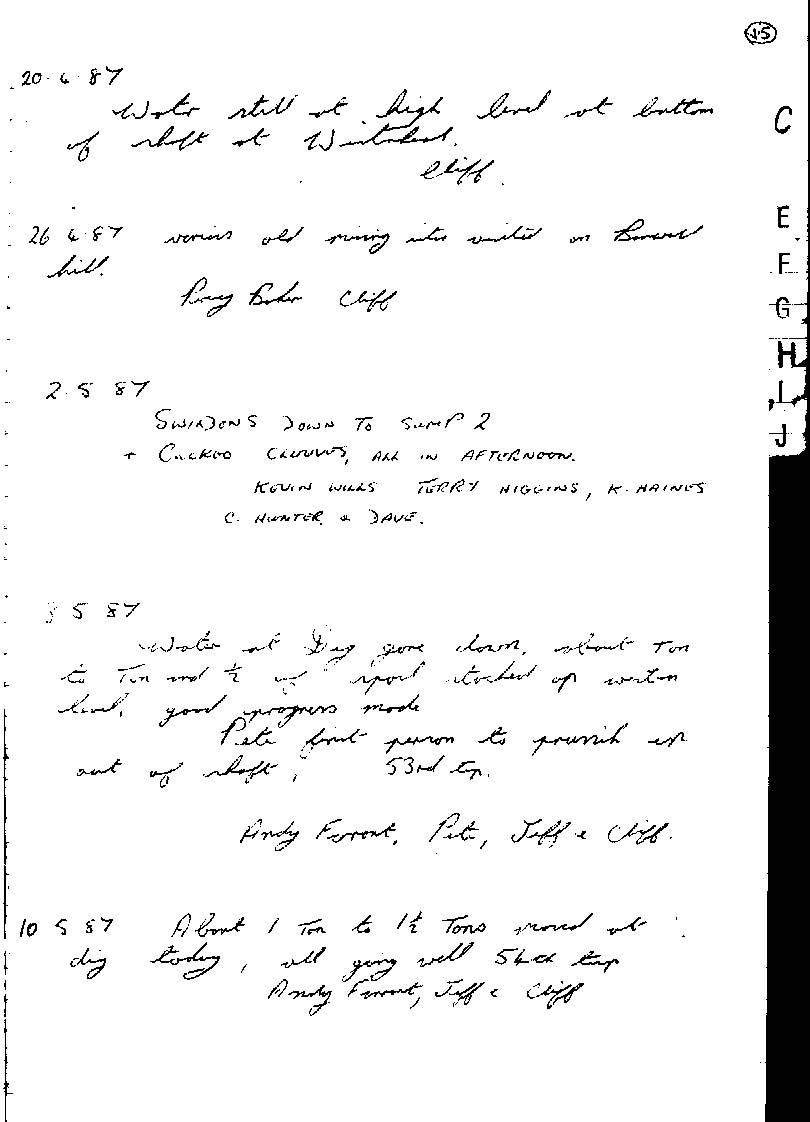 15
20.4.87
Water still at high level at bottom
of shaft at
Cliff.
26 4 87 various old mining sites visited on Banwell
hill.
Baker Cliff
2.5 87
SWILDONS DOWN TO SUMP 2
+ CUCKOO CLEEVES, ALL IN AFTERNOON.
KEVIN WILLS TERRY HIGGINS, K. HAINES
C. HUNTER & DAVE.
5 87
Water at Dig gone down, about Ton
to Ton and ½ of spoil stacked up
level, good progress made
Pete first person to prussik up
out of shaft, 53rd trip.
Andy Farrant, Pete, Jeff & Cliff.
10 5 87 About 1 Ton to 1½ Tons moved at
dig today, all going well 54th trip
Andy Farrant, Jeff & Cliff
C
E
F
G
H
I
J